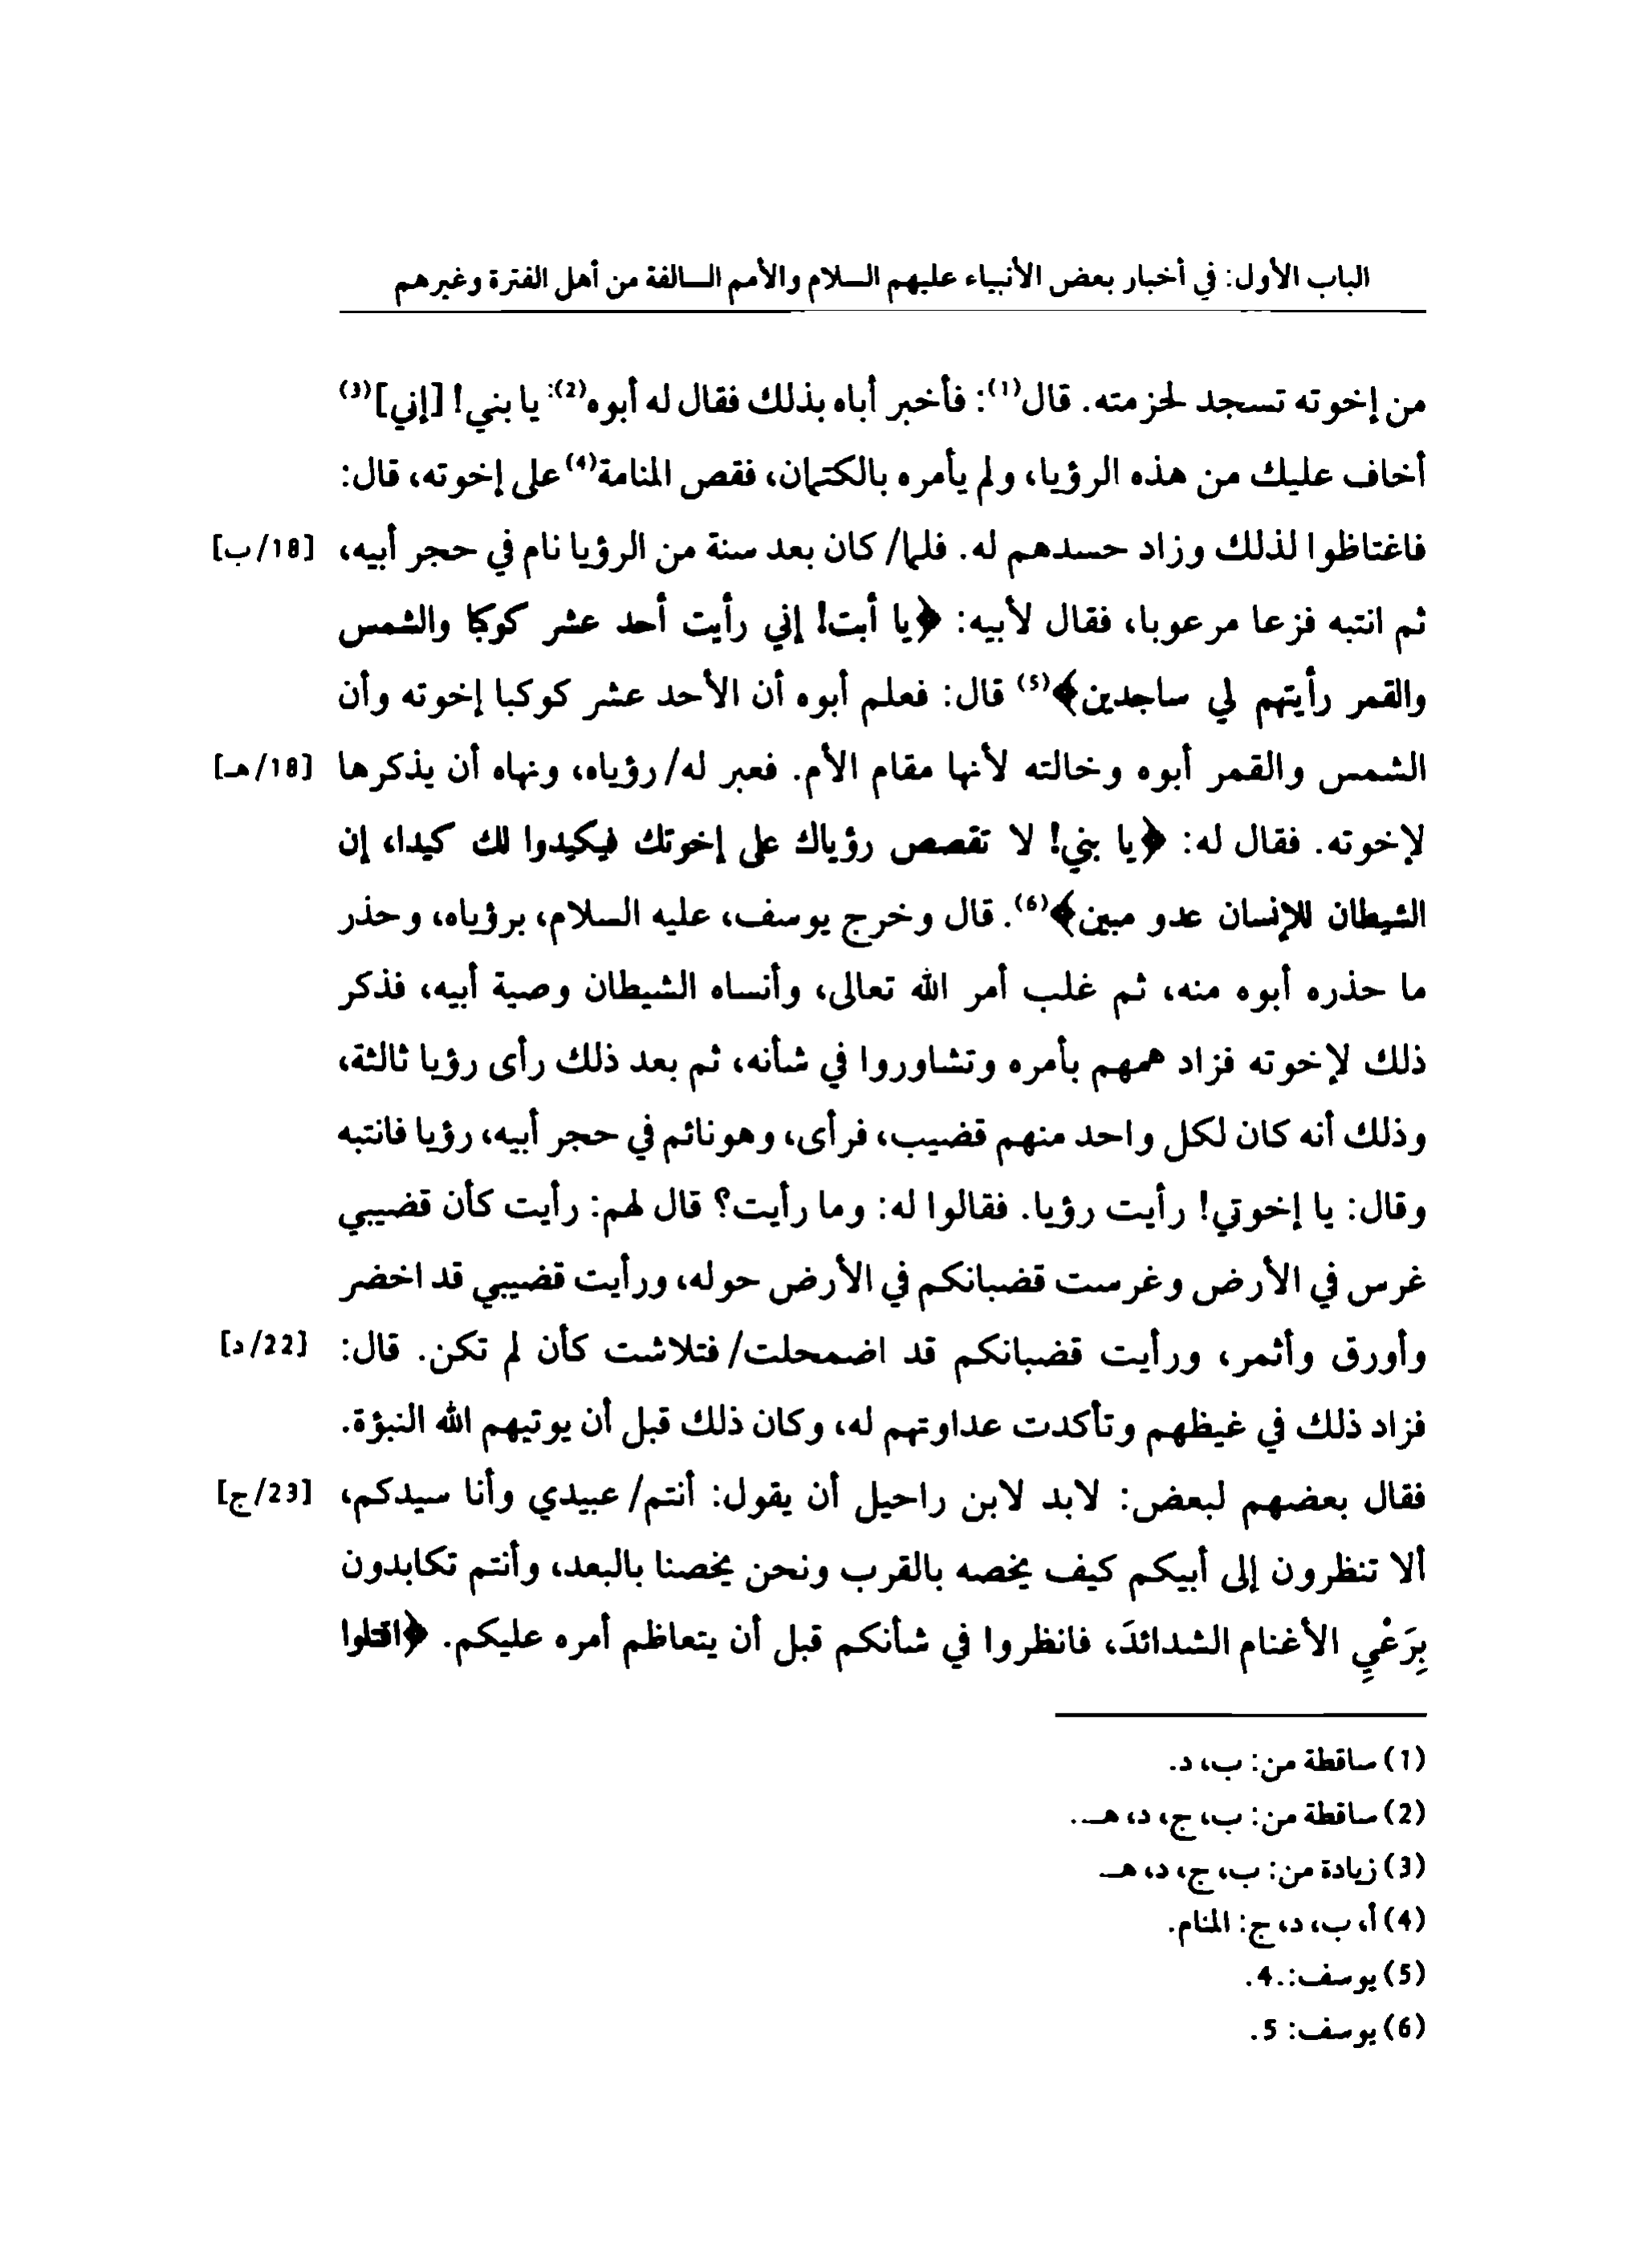 الباب الأول: في أخبار بعض الأنبياء عليهم السلام والأمم السالفة من أهل الفترة وغيرهم
من إخوته تسجد لحزمته. قال(1): فأخبر أباه بذلك فقال له أبوه(2): يا بني! [إني](3)
أخاف عليك من هذه الرؤيا، ولم يأمره بالكتمان، فقص المنامة(4) على إخوته، قال:
فاغتاظوا لذلك وزاد حسدهم له. فلما/ كان بعد سنة من الرؤيا نام في حجر أبيه، [18/ب]
ثم انتبه فزعا مرعوبا، فقال لأبيه: ﴿يا أبت! إني رأيت أحد عشر كوكبا والشمس
والقمر رأيتهم لي ساجدين﴾(5) قال: فعلم أبوه أن الأحد عشر كوكبا إخوته وأن
الشمس والقمر أبوه وخالته لأنها مقام الأم. فعبر له/ رؤياه، ونهاه أن يذكرها [18/هـ]
لإخوته. فقال له: ﴿يا بني! لا تقصص رؤياك على إخوتك فيكيدوا لك كيدا، إن
الشيطان للإنسان عدو مبين﴾(6). قال وخرج يوسف، عليه السلام، برؤياه، وحذر
ما حذره أبوه منه، ثم غلب أمر الله تعالى، وأنساه الشيطان وصية أبيه، فذكر
ذلك لإخوته فزاد همهم بأمره وتشاوروا في شأنه، ثم بعد ذلك رأى رؤيا ثالثة،
وذلك أنه كان لكل واحد منهم قضيب، فرأى، وهو نائم في حجر أبيه، رؤيا فانتبه
وقال: يا إخوتي! رأيت رؤيا. فقالوا له: وما رأيت؟ قال لهم: رأيت كأن قضيبي
غرس في الأرض وغرست قضبانكم في الأرض حوله، ورأيت قضيبي قد اخضر
وأورق وأثمر، ورأيت قضبانكم قد اضمحلت/ فتلاشت كأن لم تكن. قال: [22/د]
فزاد ذلك في غيظهم وتأكدت عداوتهم له، وكان ذلك قبل أن يوتيهم الله النبؤة.
فقال بعضهم لبعض: لابد لابن راحيل أن يقول: أنتم/ عبيدي وأنا سيدكم، [23/ج]
ألا تنظرون إلى أبيكم كيف يخصه بالقرب ونحن يخصنا بالبعد، وأنتم تكابدون
بِرَعْيِ الأغنام الشدائدَ، فانظروا في شأنكم قبل أن يتعاظم أمره عليكم. ﴿اقتلوا
(1) ساقطة من: ب، د.
(2) ساقطة من: ب، ج، د، هـ.
(3) زيادة من: ب، ج، د، هـ
(4) أ، ب، د، ج: المنام.
(5) يوسف:.4.
(6) يوسف: 5.